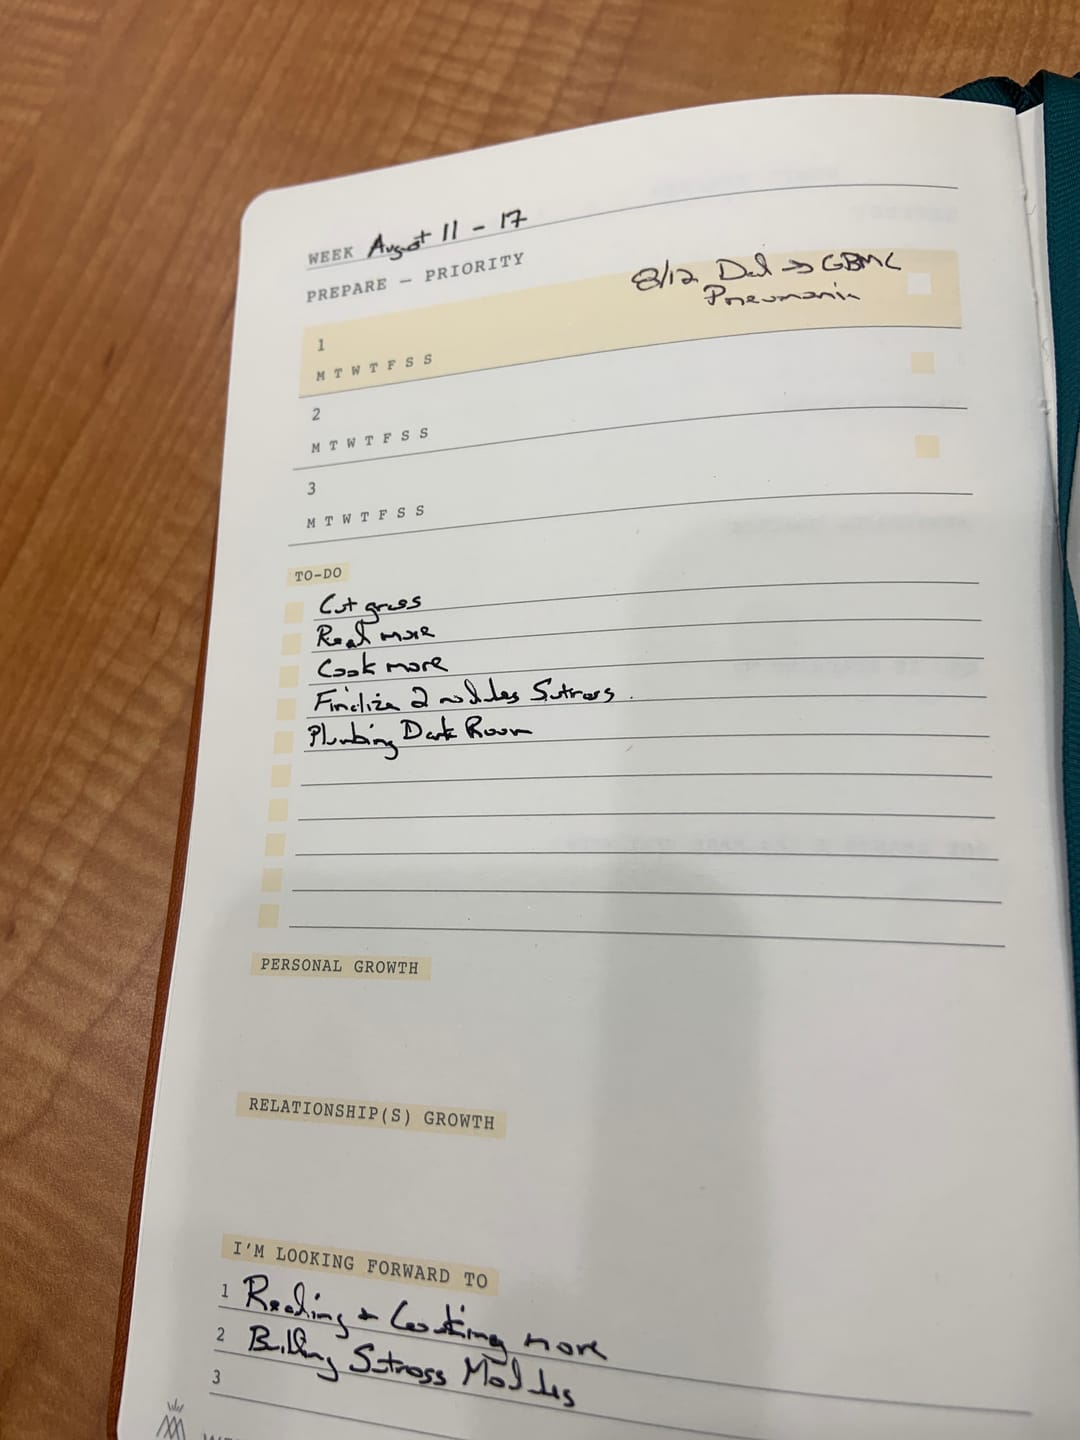 WEEK August 11 - 17
PREPARE — PRIORITY
8/12 Dad → GBMC
Pneumonia
1
M T W T F S S
2
M T W T F S S
3
M T W T F S S
TO-DO
Cut grass
Read more
Cook more
Finalize 2 modules
Plumbing Dark Room
PERSONAL GROWTH
RELATIONSHIP(S) GROWTH
I'M LOOKING FORWARD TO
1 Reading + Cooking more
2 Building Modules
3